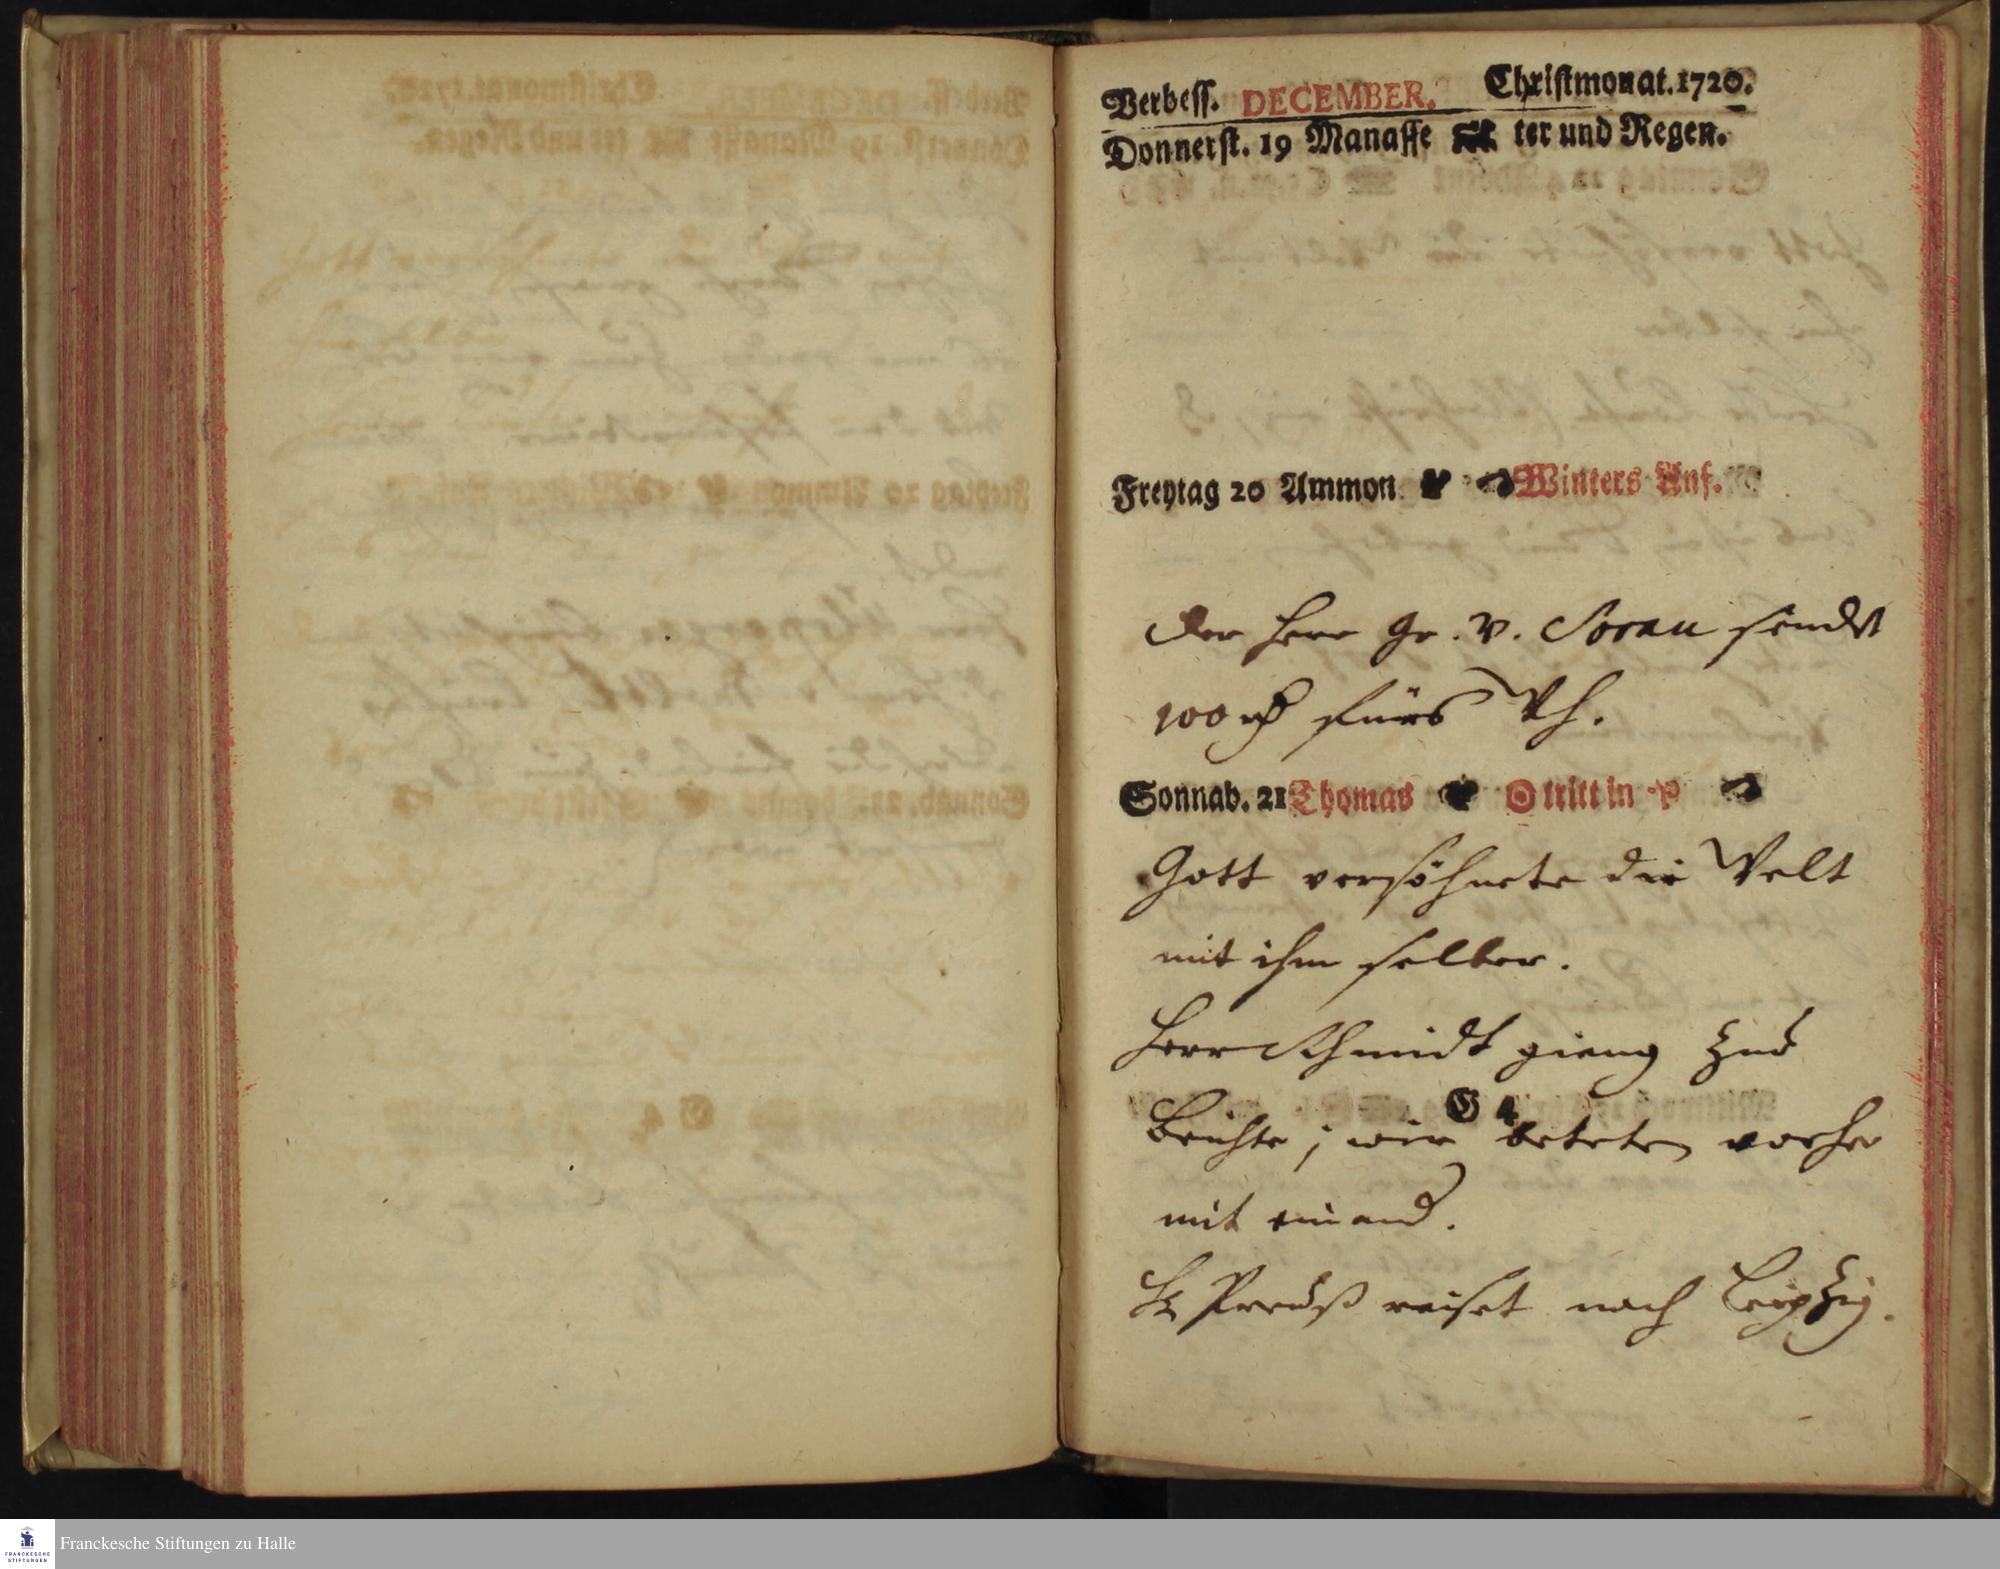 Verbeſſ. DECEMBER. Chriſtmonat. 1720.
Donnerſt. 19 Manaſſe ter und Regen.
Freytag 20 Ammon Winters Anf.
der Herr Gr. v. Sorau sendet
100 rh fürs Wh.
Sonnab. 21 Thomas ☉ tritt in
Gott versöhnete die Welt
mit ihm selber.
Herr Schmidt gieng zur
G 4
Beichte; wir beteten vorher
mit einand.
H Preuß reiset nach Leipzig.
FRANCKESCHE
STIFTUNGEN
Franckesche Stiftungen zu Halle